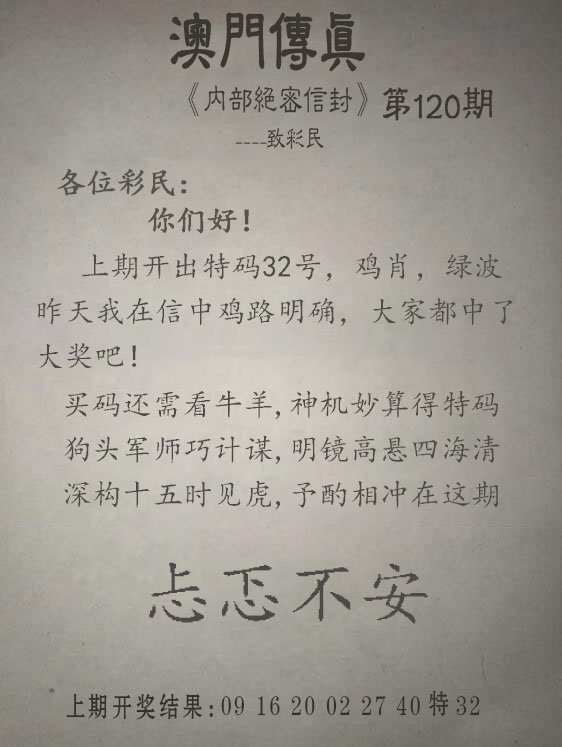 澳門傳眞
《内部絕密信封》第120期
----致彩民
各位彩民：
你们好！
上期开出特码32号，鸡肖，绿波
昨天我在信中鸡路明确，大家都中了
大奖吧！
买码还需看牛羊,神机妙算得特码
狗头军师巧计谋,明镜高悬四海清
深构十五时见虎,予酌相冲在这期
忐忑不安
上期开奖结果:09 16 20 02 27 40 特 32